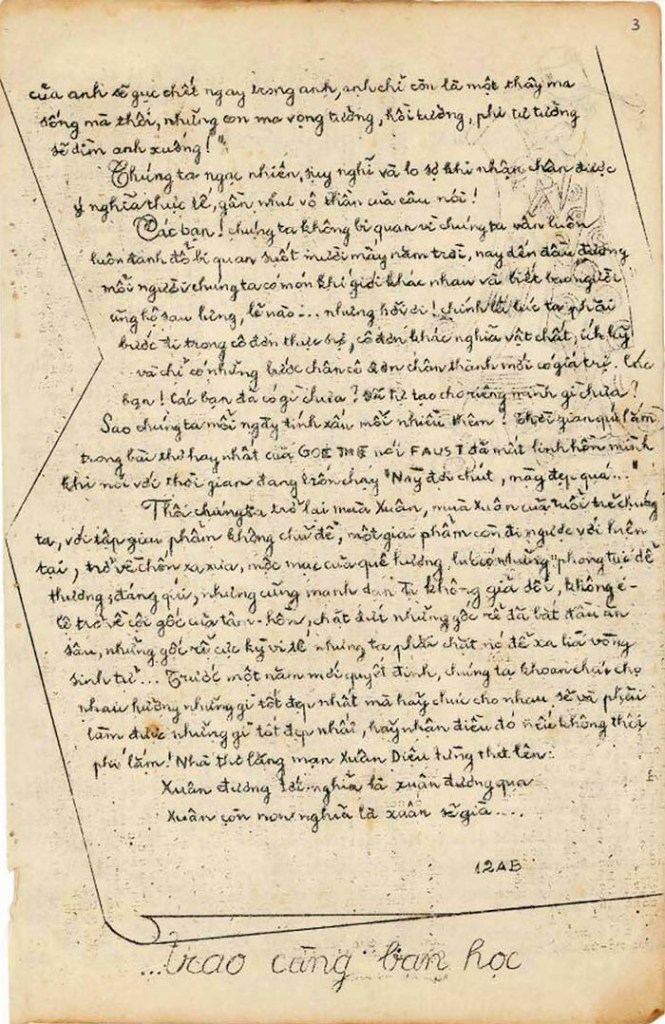 3
của anh sẽ gục chết ngay trong anh, anh chỉ còn là một thây ma
sống mà thôi, những con ma vọng tưởng, hồi tưởng, phi tư tưởng
sẽ dìm anh xuống!"
Chúng ta ngạc nhiên, suy nghĩ và lo sợ khi nhận chân được
ý nghĩa thực tế, gần như vô thần của câu nói!
Các bạn! chúng ta không bi quan vì chúng ta vẫn luôn
luôn đánh đổ bi quan suốt mười mấy năm trời, nay đến đầu đường
mỗi người chúng ta có món khí giới khác nhau và biết bao người
ủng hộ sau lưng, lẽ nào... nhưng hỡi ơi! chính là lúc ta phải
bước đi trong cô đơn thực sự, cô đơn khác nghĩa vật chất, ích kỷ
và chỉ có những bước chân cô đơn chân thành mới có giá trị. Các
bạn! Các bạn đã có gì chưa? Đã tự tạo cho riêng mình gì chưa?
Sao chúng ta mỗi ngày tính xấu mỗi nhiều thêm? Thời gian quí lắm
trong bài thơ hay nhất của GOETHE nói FAUST đã mất linh hồn mình
khi nói với thời gian đang trốn chạy "Này đợi chút, mày đẹp quá..."
Thôi chúng ta trở lại mùa Xuân, mùa Xuân của tuổi trẻ chúng
ta, với tập giai phẩm không chủ đề, một giai phẩm còn đi ngược với hiện
tại, trở về chốn xa xưa, mộc mạc của quê hương, lúc có những phong tục dễ
thương, đáng quí, nhưng cũng mạnh dạn đi không giả dối, không é-
lệ trở về cội gốc của tâm-hồn, chặt đứt những gốc rễ đã bắt đầu ăn
sâu, những gốc rễ cực kỳ vi tế nhưng ta phải chặt nó để xa lìa vòng
sinh tử... Trước một năm mới quyết định, chúng ta khoan chúc cho
nhau hưởng những gì tốt đẹp nhất mà hãy chúc cho nhau sẽ và phải
làm được những gì tốt đẹp nhất, hãy nhận điều đó nếu không thì
phí lắm! Nhà thơ lãng mạn Xuân Diệu từng thốt lên:
Xuân đương tới nghĩa là xuân đương qua
Xuân còn non nghĩa là xuân sẽ già....
12AB
...trao cùng bạn học